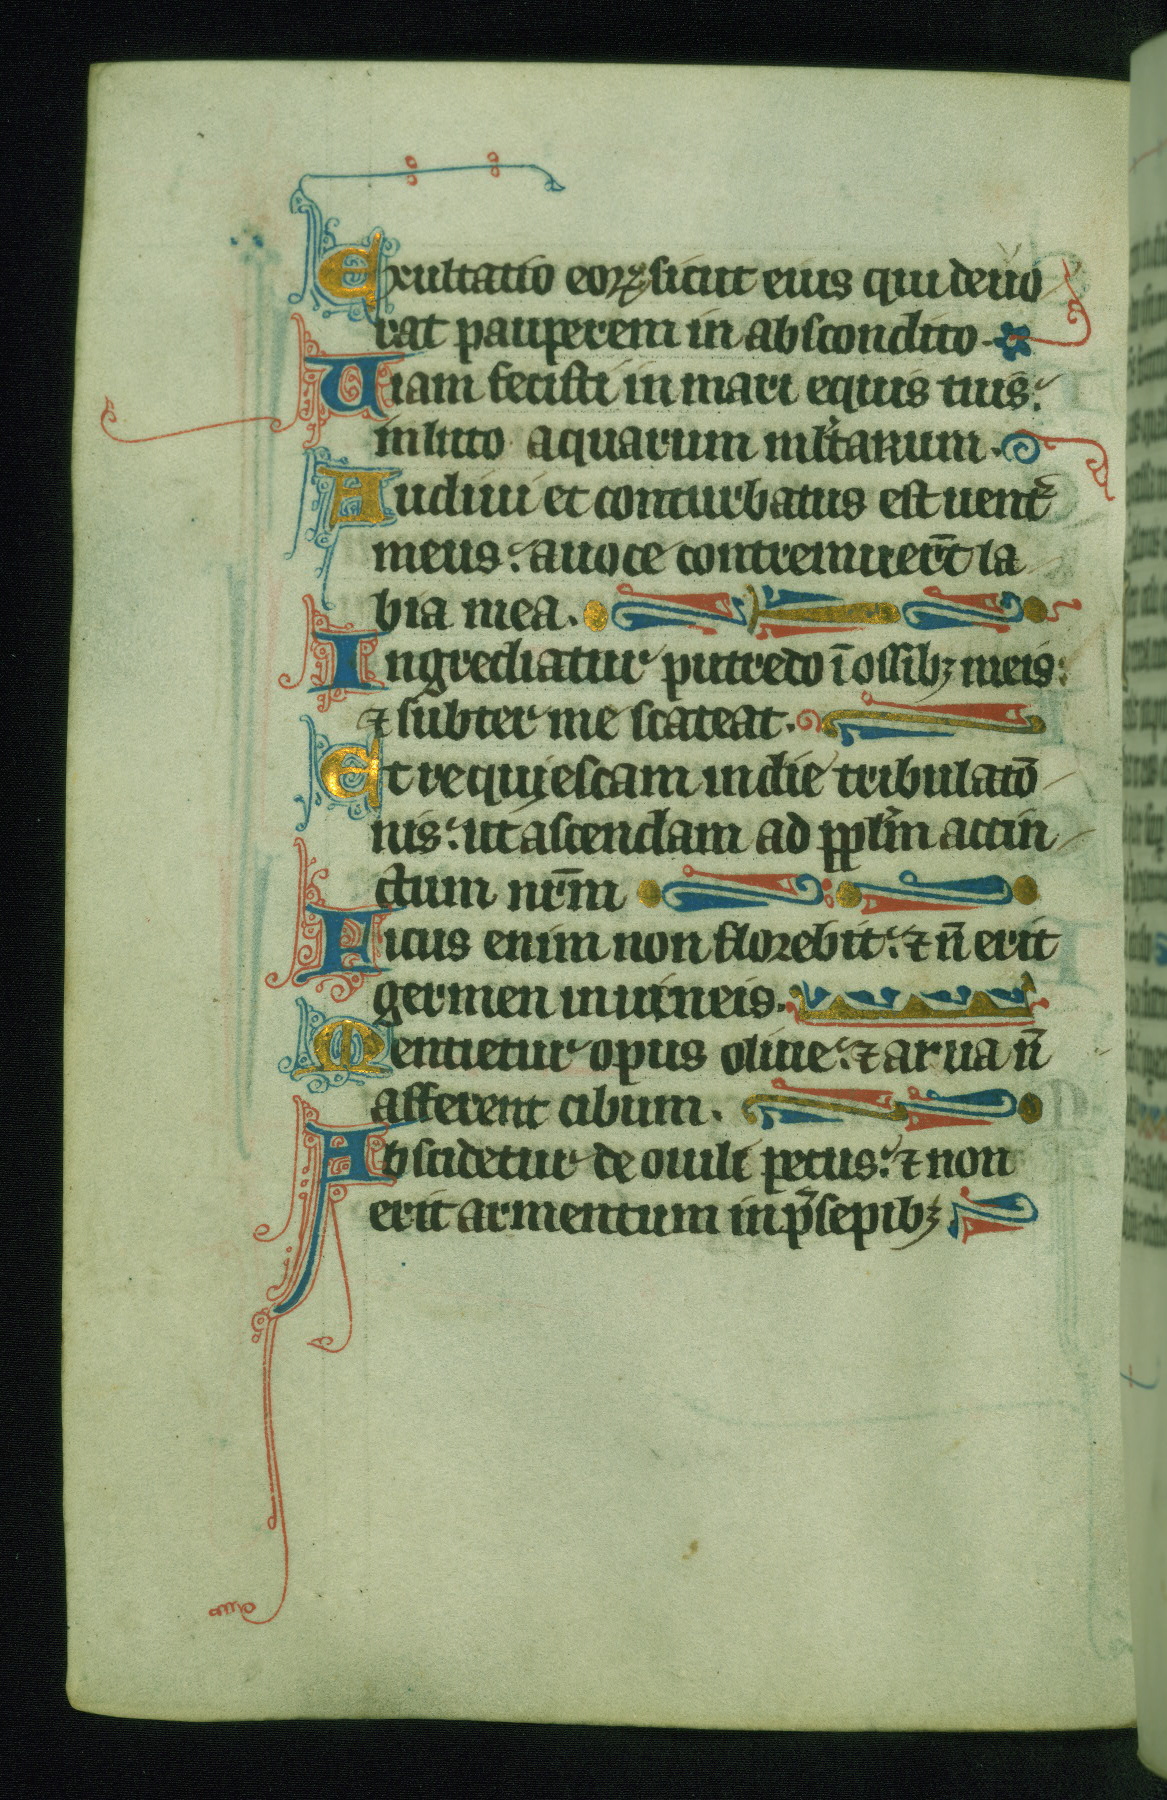 Exultatio eorꝝ sicut eius qui deuo
rat pauperem in abscondito.
Uiam fecisti in mari equis tuis:
in luto aquarum ml̃tarum.
Audiui et conturbatus est uent᷒
meus: a uoce contremuer̃t la
bia mea.
Ingrediatur putredo ī ossibꝫ meis:
⁊ subter me scateat.
Et requiescam in die tribulatō
nis: ut ascendam ad ppl̃m accin
ctum nr̃m
Ficus enim non florebit: ⁊ n̄ erit
germen in uineis.
Mentietur opus oliue: ⁊ arua n̄
afferent cibum.
Abscidetur de ouili pecus: ⁊ non
erit armentum in p̃sepibꝫ